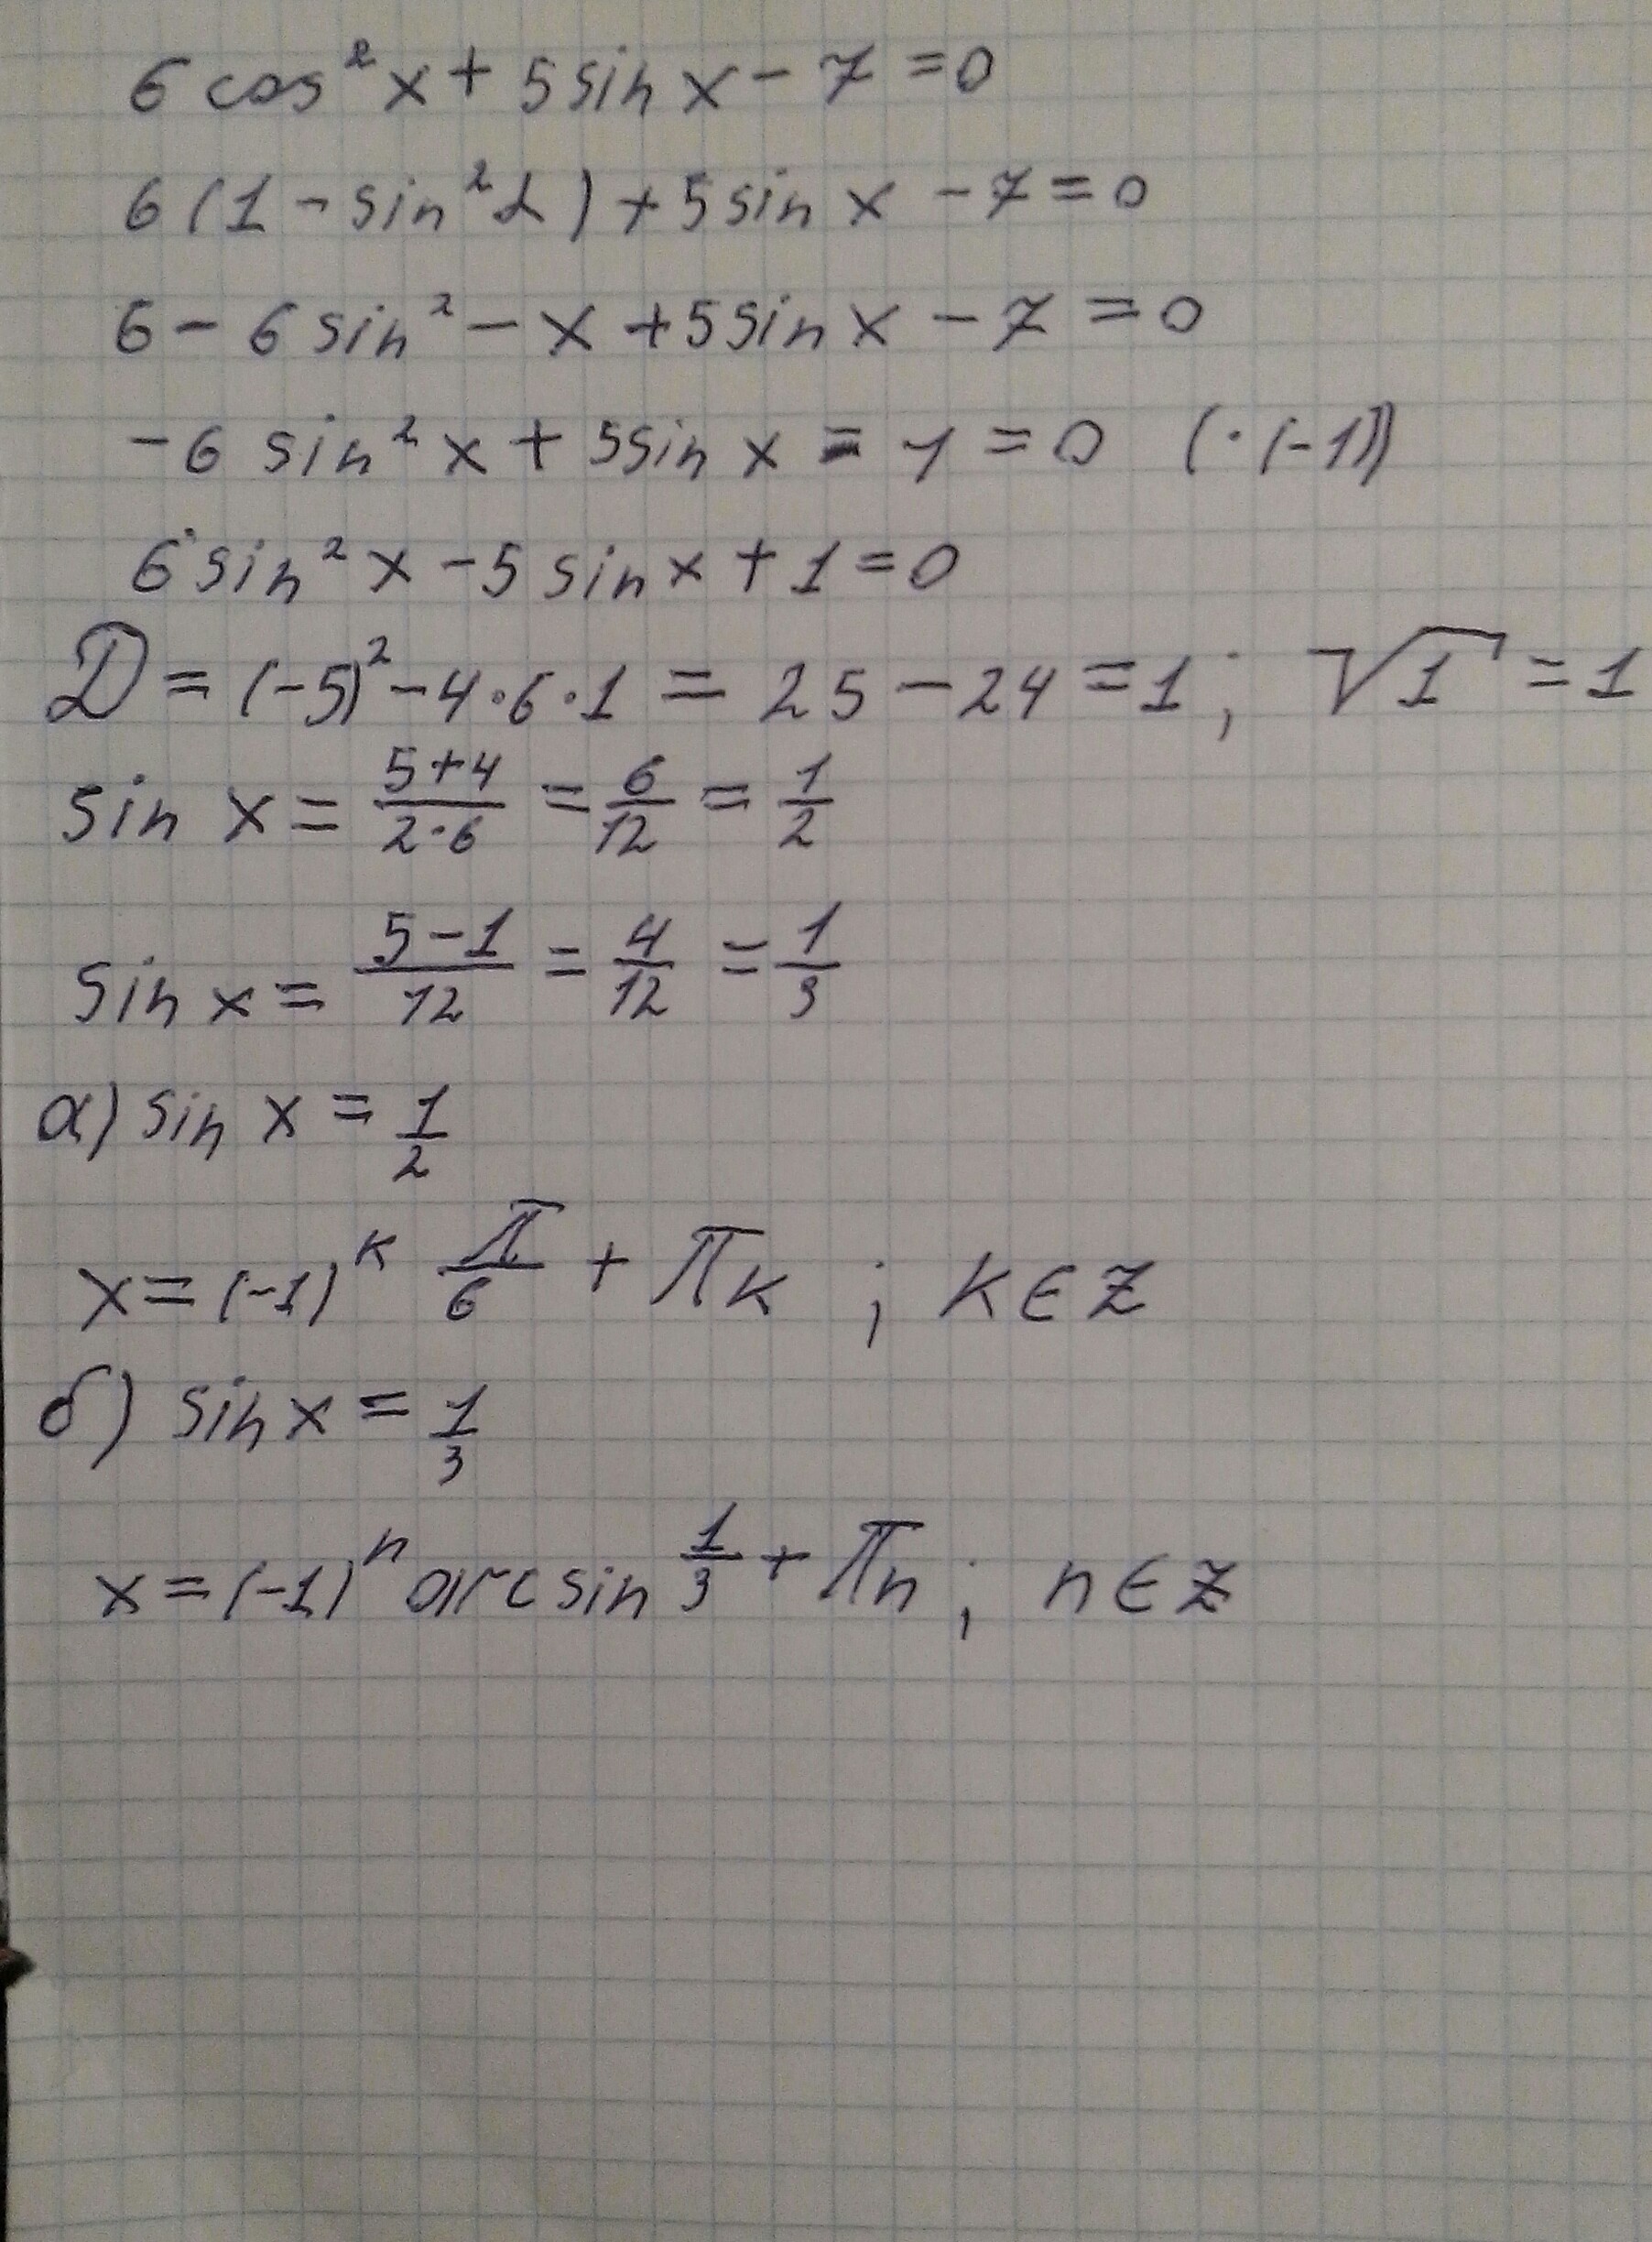 6 cos² x + 5 sin x - 7 = 0
6 (1 - sin² α) + 5 sin x - 7 = 0
6 - 6 sin² - x + 5 sin x - 7 = 0
-6 sin² x + 5 sin x - 1 = 0 (· (-1))
6 sin² x - 5 sin x + 1 = 0
D = (-5)² - 4 · 6 · 1 = 25 - 24 = 1 ; √1 = 1
sin x = (5+4)/(2·6) = 6/12 = 1/2
sin x = (5-1)/12 = 4/12 = 1/3
а) sin x = 1/2
x = (-1)^k π/6 + πk ; k ∈ Z
б) sin x = 1/3
x = (-1)^n arcsin 1/3 + πn ; n ∈ Z